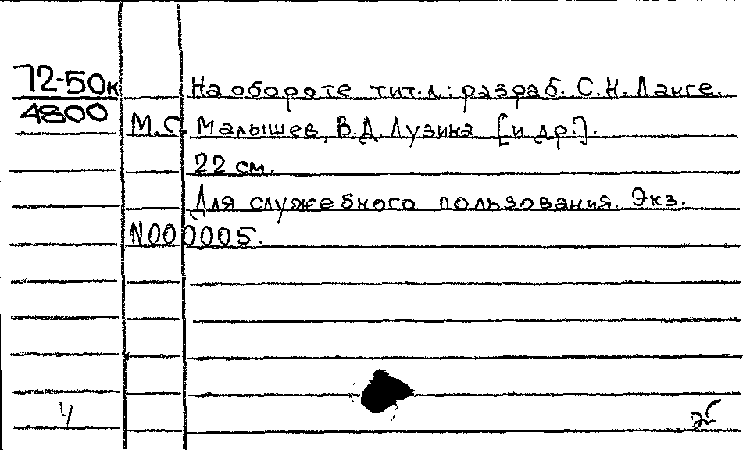 72-50к
4800
На обороте тит.л.: разраб. С.Н. Ланге.
М.С. Малышев, В.Д. Лузина [и др.].
22 см.
Для служебного пользования. Экз.
N000005.